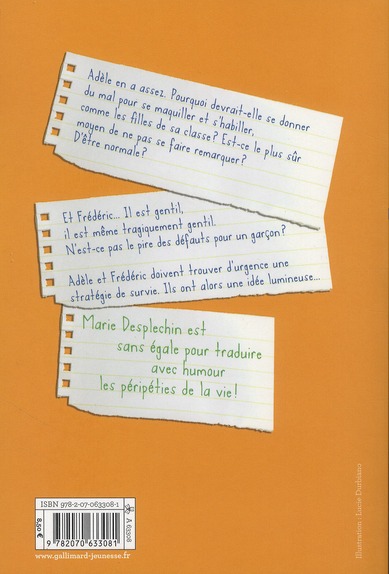 Adèle en a assez. Pourquoi devrait-elle se donner
du mal pour se maquiller et s'habiller,
comme les filles de sa classe? Est-ce le plus sûr
moyen de ne pas se faire remarquer?
D'être normale?
Et Frédéric... Il est gentil,
il est même tragiquement gentil.
N'est-ce pas le pire des défauts pour un garçon?
Adèle et Frédéric doivent trouver d'urgence une
stratégie de survie. Ils ont alors une idée lumineuse...
Marie Desplechin est
sans égale pour traduire
avec humour
les péripéties de la vie!
ISBN 978-2-07-063308-1
9 782070 633081
8,50 €
A 63308
www.gallimard-jeunesse.fr